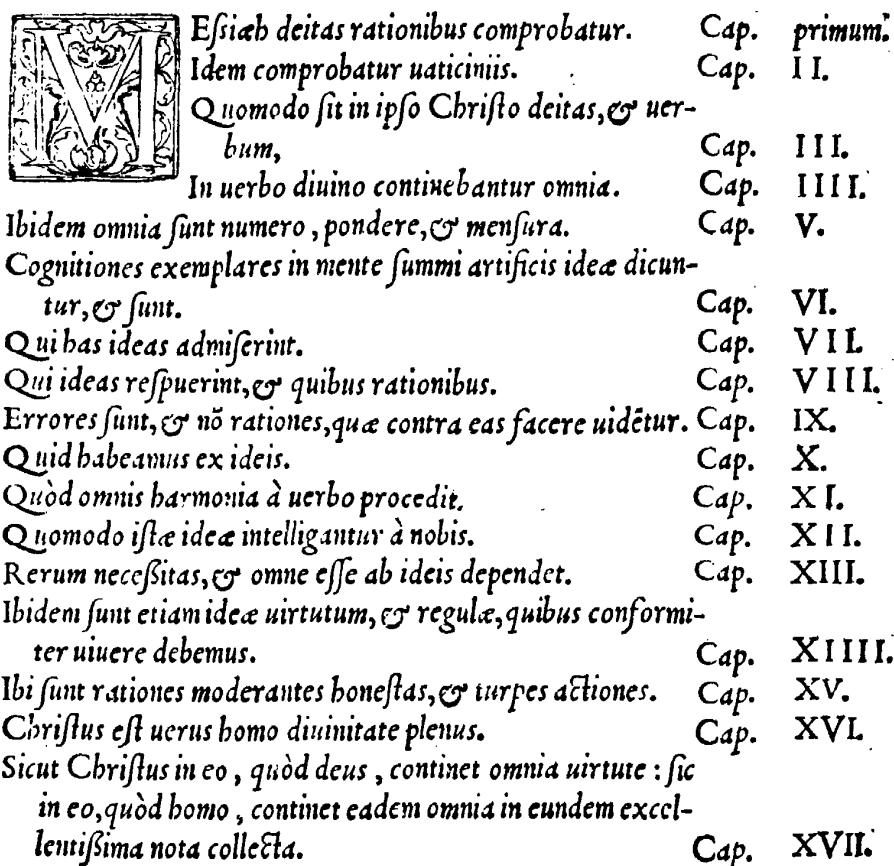 MEſsiæh deitas rationibus comprobatur. Cap. primum.
Idem comprobatur uaticiniis. Cap. II.
Quomodo ſit in ipſo Chriſto deitas, & uer-
bum, Cap. III.
In uerbo diuino continebantur omnia. Cap. IIII.
Ibidem omnia ſunt numero, pondere, & menſura. Cap. V.
Cognitiones exemplares in mente ſummi artificis ideæ dicun-
tur, & ſunt. Cap. VI.
Qui has ideas admiſerint. Cap. VII.
Qui ideas reſpuerint, & quibus rationibus. Cap. VIII.
Errores ſunt, & nō rationes, quæ contra eas facere uidētur. Cap. IX.
Quid habeamus ex ideis. Cap. X.
Quòd omnis harmonia à uerbo procedit. Cap. XI.
Quomodo iſtæ ideæ intelligantur à nobis. Cap. XII.
Rerum neceßitas, & omne eſſe ab ideis dependet. Cap. XIII.
Ibidem ſunt etiam ideæ uirtutum, & regulæ, quibus conformi-
ter uiuere debemus. Cap. XIIII.
Ibi ſunt rationes moderantes honeſtas, & turpes actiones. Cap. XV.
Chriſtus eſt uerus homo diuinitate plenus. Cap. XVI.
Sicut Chriſtus in eo, quòd deus, continet omnia uirtute: ſic
in eo, quòd homo, continet eadem omnia in eundem excel-
lentißima nota collecta. Cap. XVII.